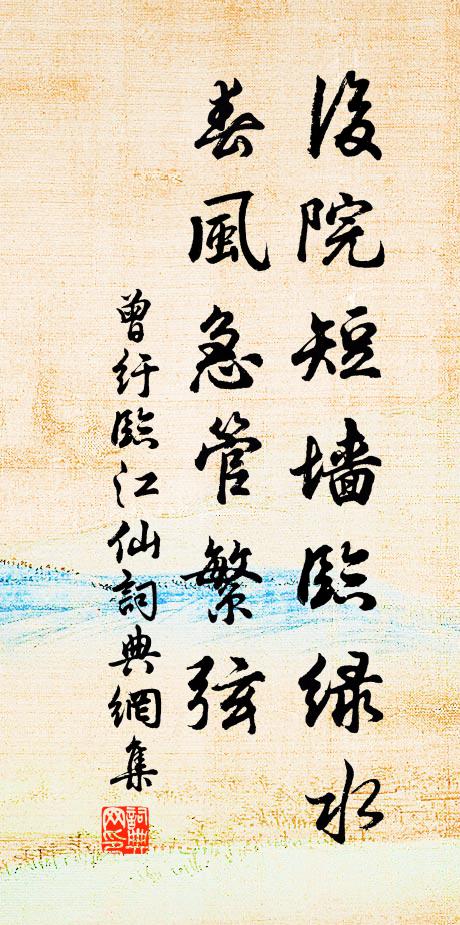 後院短墙臨緑水
春風急管繁弦
曾紆臨江仙詞典網集
詞典網印